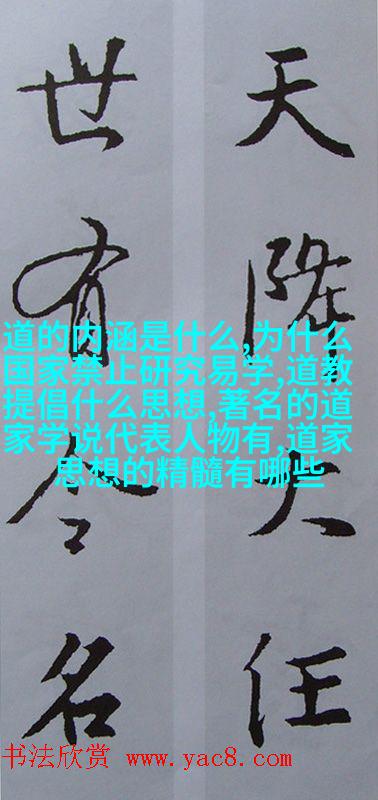 天降大任
世有令名
道的内涵是什么,为什么
国家禁止研究易学,道教
提倡什么思想,著名的道
家学说代表人物有,道家
思想的精髓有哪些
书法欣赏 www.yac8.com